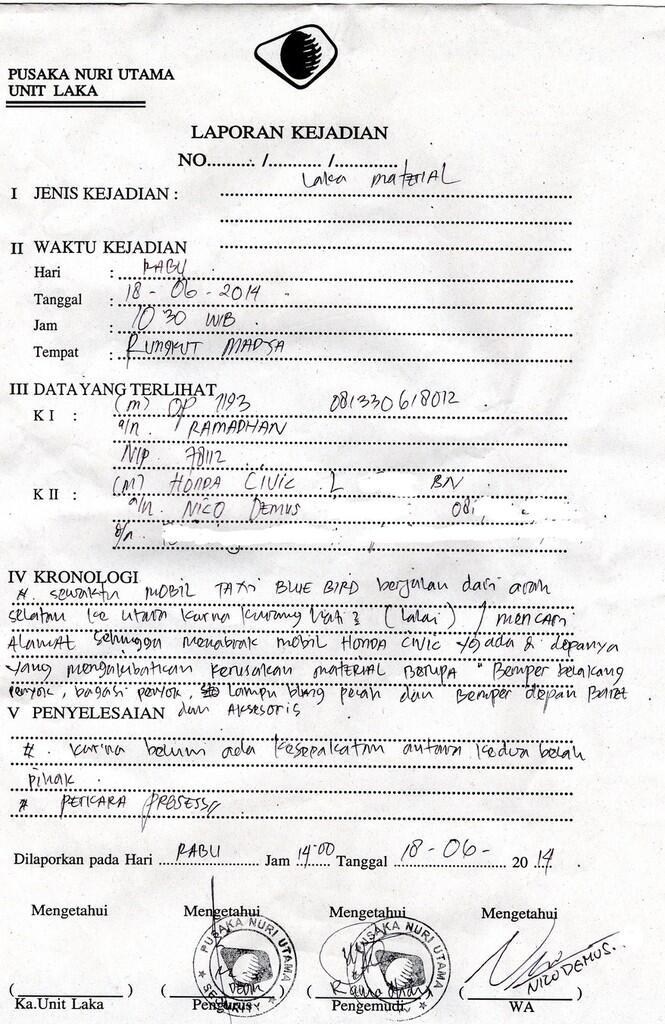 PUSAKA NURI UTAMA
UNIT LAKA
LAPORAN KEJADIAN
NO.......... /........... /.............
I JENIS KEJADIAN : Laka MATERIAL
II WAKTU KEJADIAN
Hari : RABU
Tanggal : 18 - 06 - 2014
Jam : 10 30 WIB
Tempat : RUNGKUT MADYA
III DATA YANG TERLIHAT
K I : (M) OP 1193 081330618012
a/n. RAMADHAN
NIP 78112
K II : (M) HONDA CIVIC L BN
a/n. NICO DEMUS 081
a/n
IV KRONOLOGI
#. sewaktu MOBIL TAXI BLUE BIRD berjalan dari arah
selatan ke utara karna kurang hati2 (lalai) / MENCARI
ALAMAT sehingga menabrak mobil HONDA CIVIC yg ada di depanya
yang mengakibatkan kerusakan MATERIAL BERUPA " Bemper belakang
penyok, bagasi penyok, lampu blkng pecah dan Bemper depan Baret
dan Aksesoris
V PENYELESAIAN
#. karna belum ada kesepakatan antara kedua belah
pihak
# PERKARA PROSESS
Dilaporkan pada Hari RABU Jam 14:00 Tanggal 18 - 06 - 2014
Mengetahui Mengetahui Mengetahui Mengetahui
PUSAKA NURI UTAMA
SECURITY
PUSAKA NURI UTAMA
NICO DEMUS.
Ka.Unit Laka Pengurus Pengemudi WA